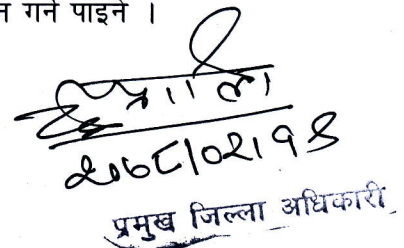 न गर्न पाइने ।
२०७८/०२/१९
प्रमुख जिल्ला अधिकारी